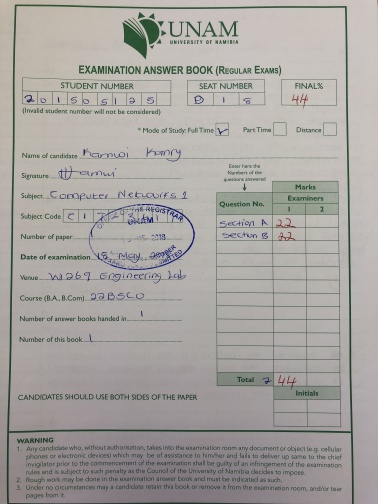 UNAM
UNIVERSITY OF NAMIBIA
EXAMINATION ANSWER BOOK (REGULAR EXAMS)
STUDENT NUMBER SEAT NUMBER FINAL%
201505125 D 18 44
(Invalid student number will not be considered)
* Mode of Study: Full Time ✓ Part Time Distance
Name of candidate Kamwi
Signature
Subject Computer Networks 1
Subject Code C I
Number of paper
Date of examination May
Venue W269 Engineering Lab
Course (B.A., B.Com) 22BSCO
Number of answer books handed in 1
Number of this book 1
Enter here the Numbers of the questions answered
Marks
Question No. Examiners
1 2
Section A 22
Section B 22
Total 44
Initials
THE REGISTRAR
UNAM
2018
CANDIDATES SHOULD USE BOTH SIDES OF THE PAPER
WARNING
1. Any candidate who, without authorisation, takes into the examination room any document or object (e.g. cellular
phones or electronic devices) which may be of assistance to him/her and fails to deliver up same to the chief
invigilator prior to the commencement of the examination shall be guilty of an infringement of the examination
rules and is subject to such penalty as the Council of the University of Namibia decides to impose.
2. Rough work may be done in the examination answer book and must be indicated as such.
3. Under no circumstances may a candidate retain this book or remove it from the examination room, and/or tear
pages from it.